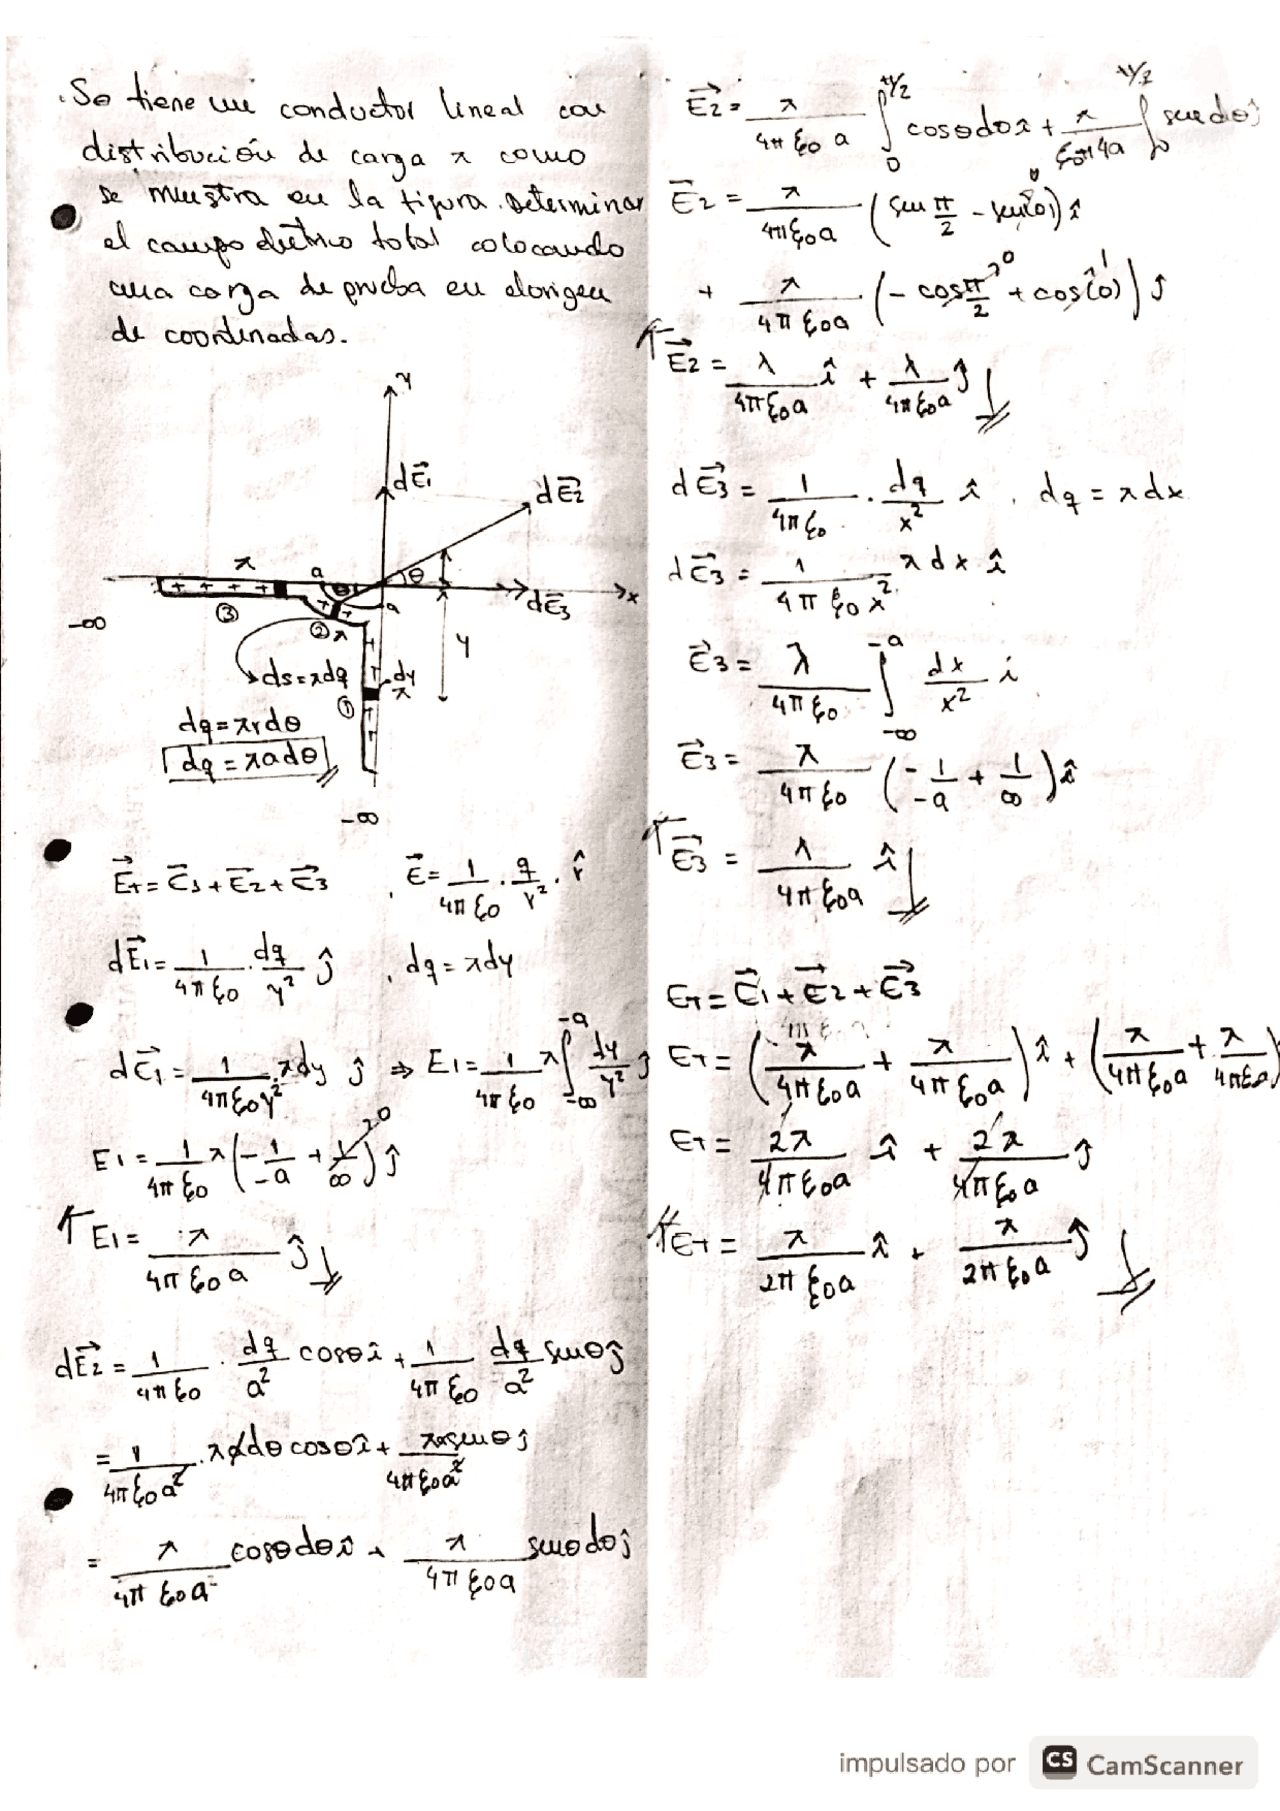 .Se tiene un conductor lineal con
distribución de carga λ como
se muestra en la figura. Determinar
el campo eléctrico total colocando
una carga de prueba en el origen
de coordenadas.
y
dE⃗₁
dE⃗₂
λ
a
θ
θ
a
dE⃗₃
x
-∞
③
②
λ
y
ds=λdq
dy
λ
①
dq=λrdθ
dq=λadθ
-∞
E⃗T = E⃗₁ + E⃗₂ + E⃗₃ , E⃗ = 1/4πξ₀ · q/r² · r̂
dE⃗₁ = 1/4πξ₀ · dq/y² ĵ , dq = λdy
dE⃗₁ = 1/4πξ₀y² · λdy ĵ ⇒ E₁ = 1/4πξ₀ λ ∫_{-∞}^{-a} dy/y² ĵ
E₁ = 1/4πξ₀ λ (-1/-a + 1/∞) ĵ → 0
E₁ = λ/4πξ₀a ĵ
dE⃗₂ = 1/4πξ₀ · dq/a² cosθ î + 1/4πξ₀ dq/a² senθ ĵ
= 1/4πξ₀a² · λadθ cosθ î + λasenθ ĵ/4πξ₀a²
= λ/4πξ₀a cosθdθ î + λ/4πξ₀a senθdθ ĵ
E⃗₂ = λ/4πξ₀a ∫₀^{π/2} cosθdθ î + λ/ξ₀π4a ∫₀^{π/2} senθdθ ĵ
E⃗₂ = λ/4πξ₀a (sen π/2 - sen(0)) î → 0
+ λ/4πξ₀a (-cos π/2 + cos(0)) ĵ → 0 1
E⃗₂ = λ/4πξ₀a î + λ/4πξ₀a ĵ
dE⃗₃ = 1/4πξ₀ · dq/x² î , dq = λdx
dE⃗₃ = 1/4πξ₀x² · λdx î
E⃗₃ = λ/4πξ₀ ∫_{-∞}^{-a} dx/x² î
E⃗₃ = λ/4πξ₀ (-1/-a + 1/∞) î
E⃗₃ = λ/4πξ₀a î
ET = E⃗₁ + E⃗₂ + E⃗₃
ET = (λ/4πξ₀a + λ/4πξ₀a) î + (λ/4πξ₀a + λ/4πξ₀a)
ET = 2λ/4πξ₀a î + 2λ/4πξ₀a ĵ
ET = λ/2πξ₀a î + λ/2πξ₀a ĵ
impulsado por CS CamScanner